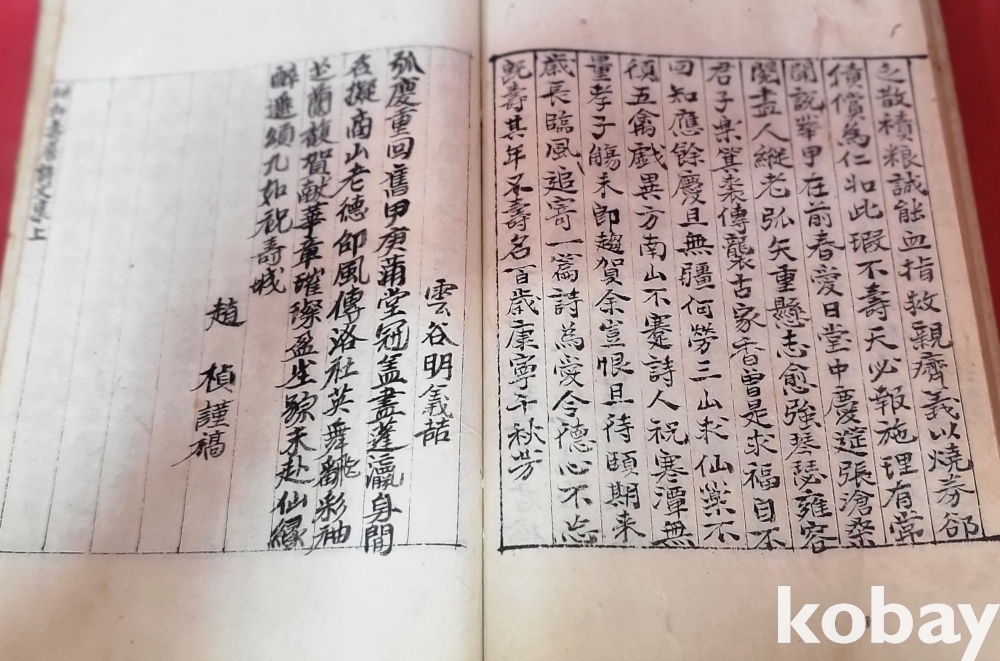 之散積粮誠能血指救親癠義以燒券郤
債償為仁如此瑕不壽天必報施理有常
聞說峯甲在前春愛日堂中慶筵張滄桑
閱盡人縱老弧矢重懸志愈強琴瑟雍容
君子樂箕裘傳襲古家香曾是求福自不
回知應餘慶且無疆何勞三山求仙藥不
須五禽戲異方南山不騫詩人祝寒潭無
量孝子觴未卽趨賀余豈恨且待頤期来
歲長臨風追寄一篇詩為愛令德心不忘
旣壽其年不壽名百歲康寧千秋芳
雲谷明義喆
弧慶重回舊甲庚蒲堂冠盖盡蓬瀛身閒
擬商山老德卲風傳洛社英舞翻彩袖
芝蘭馥賀献華章璀璨盈生未赴仙緣
醉遙頌九如祝壽城
趙 楨謹稿
詩文集上
kobay